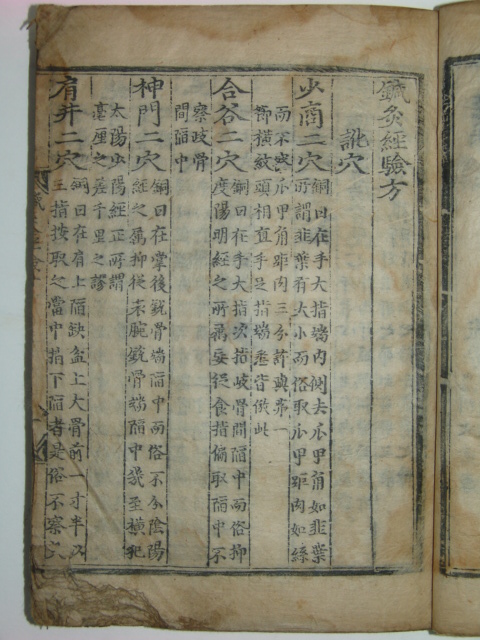 鍼灸經驗方
訛穴
少商二穴
銅曰在手大指端內側去爪甲角如韭葉
所謂韭葉有大小而俗取爪甲距肉如絲
而不 爪甲角距肉三分許與第一
節橫紋頭相直手足指端悉皆倣此
合谷二穴
銅曰在手大指次指歧骨間陷中而俗抑
度陽明經之所爲要從食指偏取陷中不
察歧骨
間陷中
神門二穴
銅曰在掌後銳骨端陷中而俗不分陰陽
經之属抑從末腕銳骨端陷中幾至橫犯
太陽少陽經正所謂
毫厘之差千里之謬
肩井二穴
銅曰在肩上陷缺盆上大骨前一寸半以
三指按取之當中指下陷者是俗不察